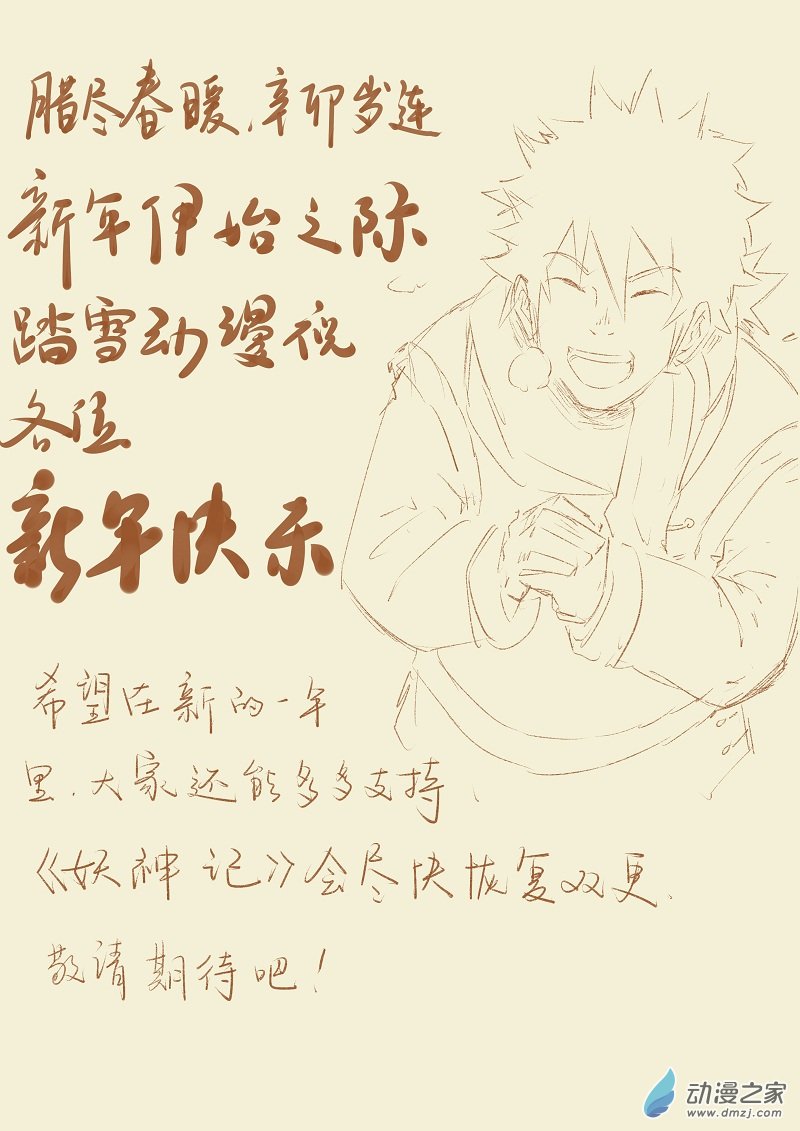 腊尽春暖,辛卯岁连
新年伊始之际
踏雪动漫祝
各位
新年快乐
希望在新的一年
里,大家还能多多支持、
《妖神记》会尽快恢复双更、
敬请期待吧!
动漫之家
www.dmzj.com